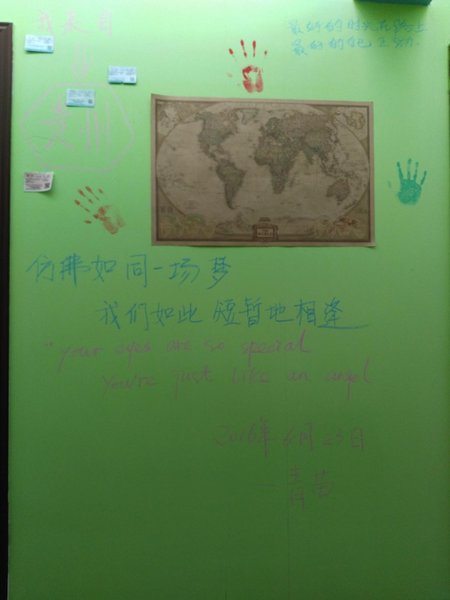 我来自
贵州
最好的时光在路上
最好的自己在努力
仿拂如同一场梦
我们如此短暂地相逢
"your eyes are so special
you're just like an angel
2016年6月23日